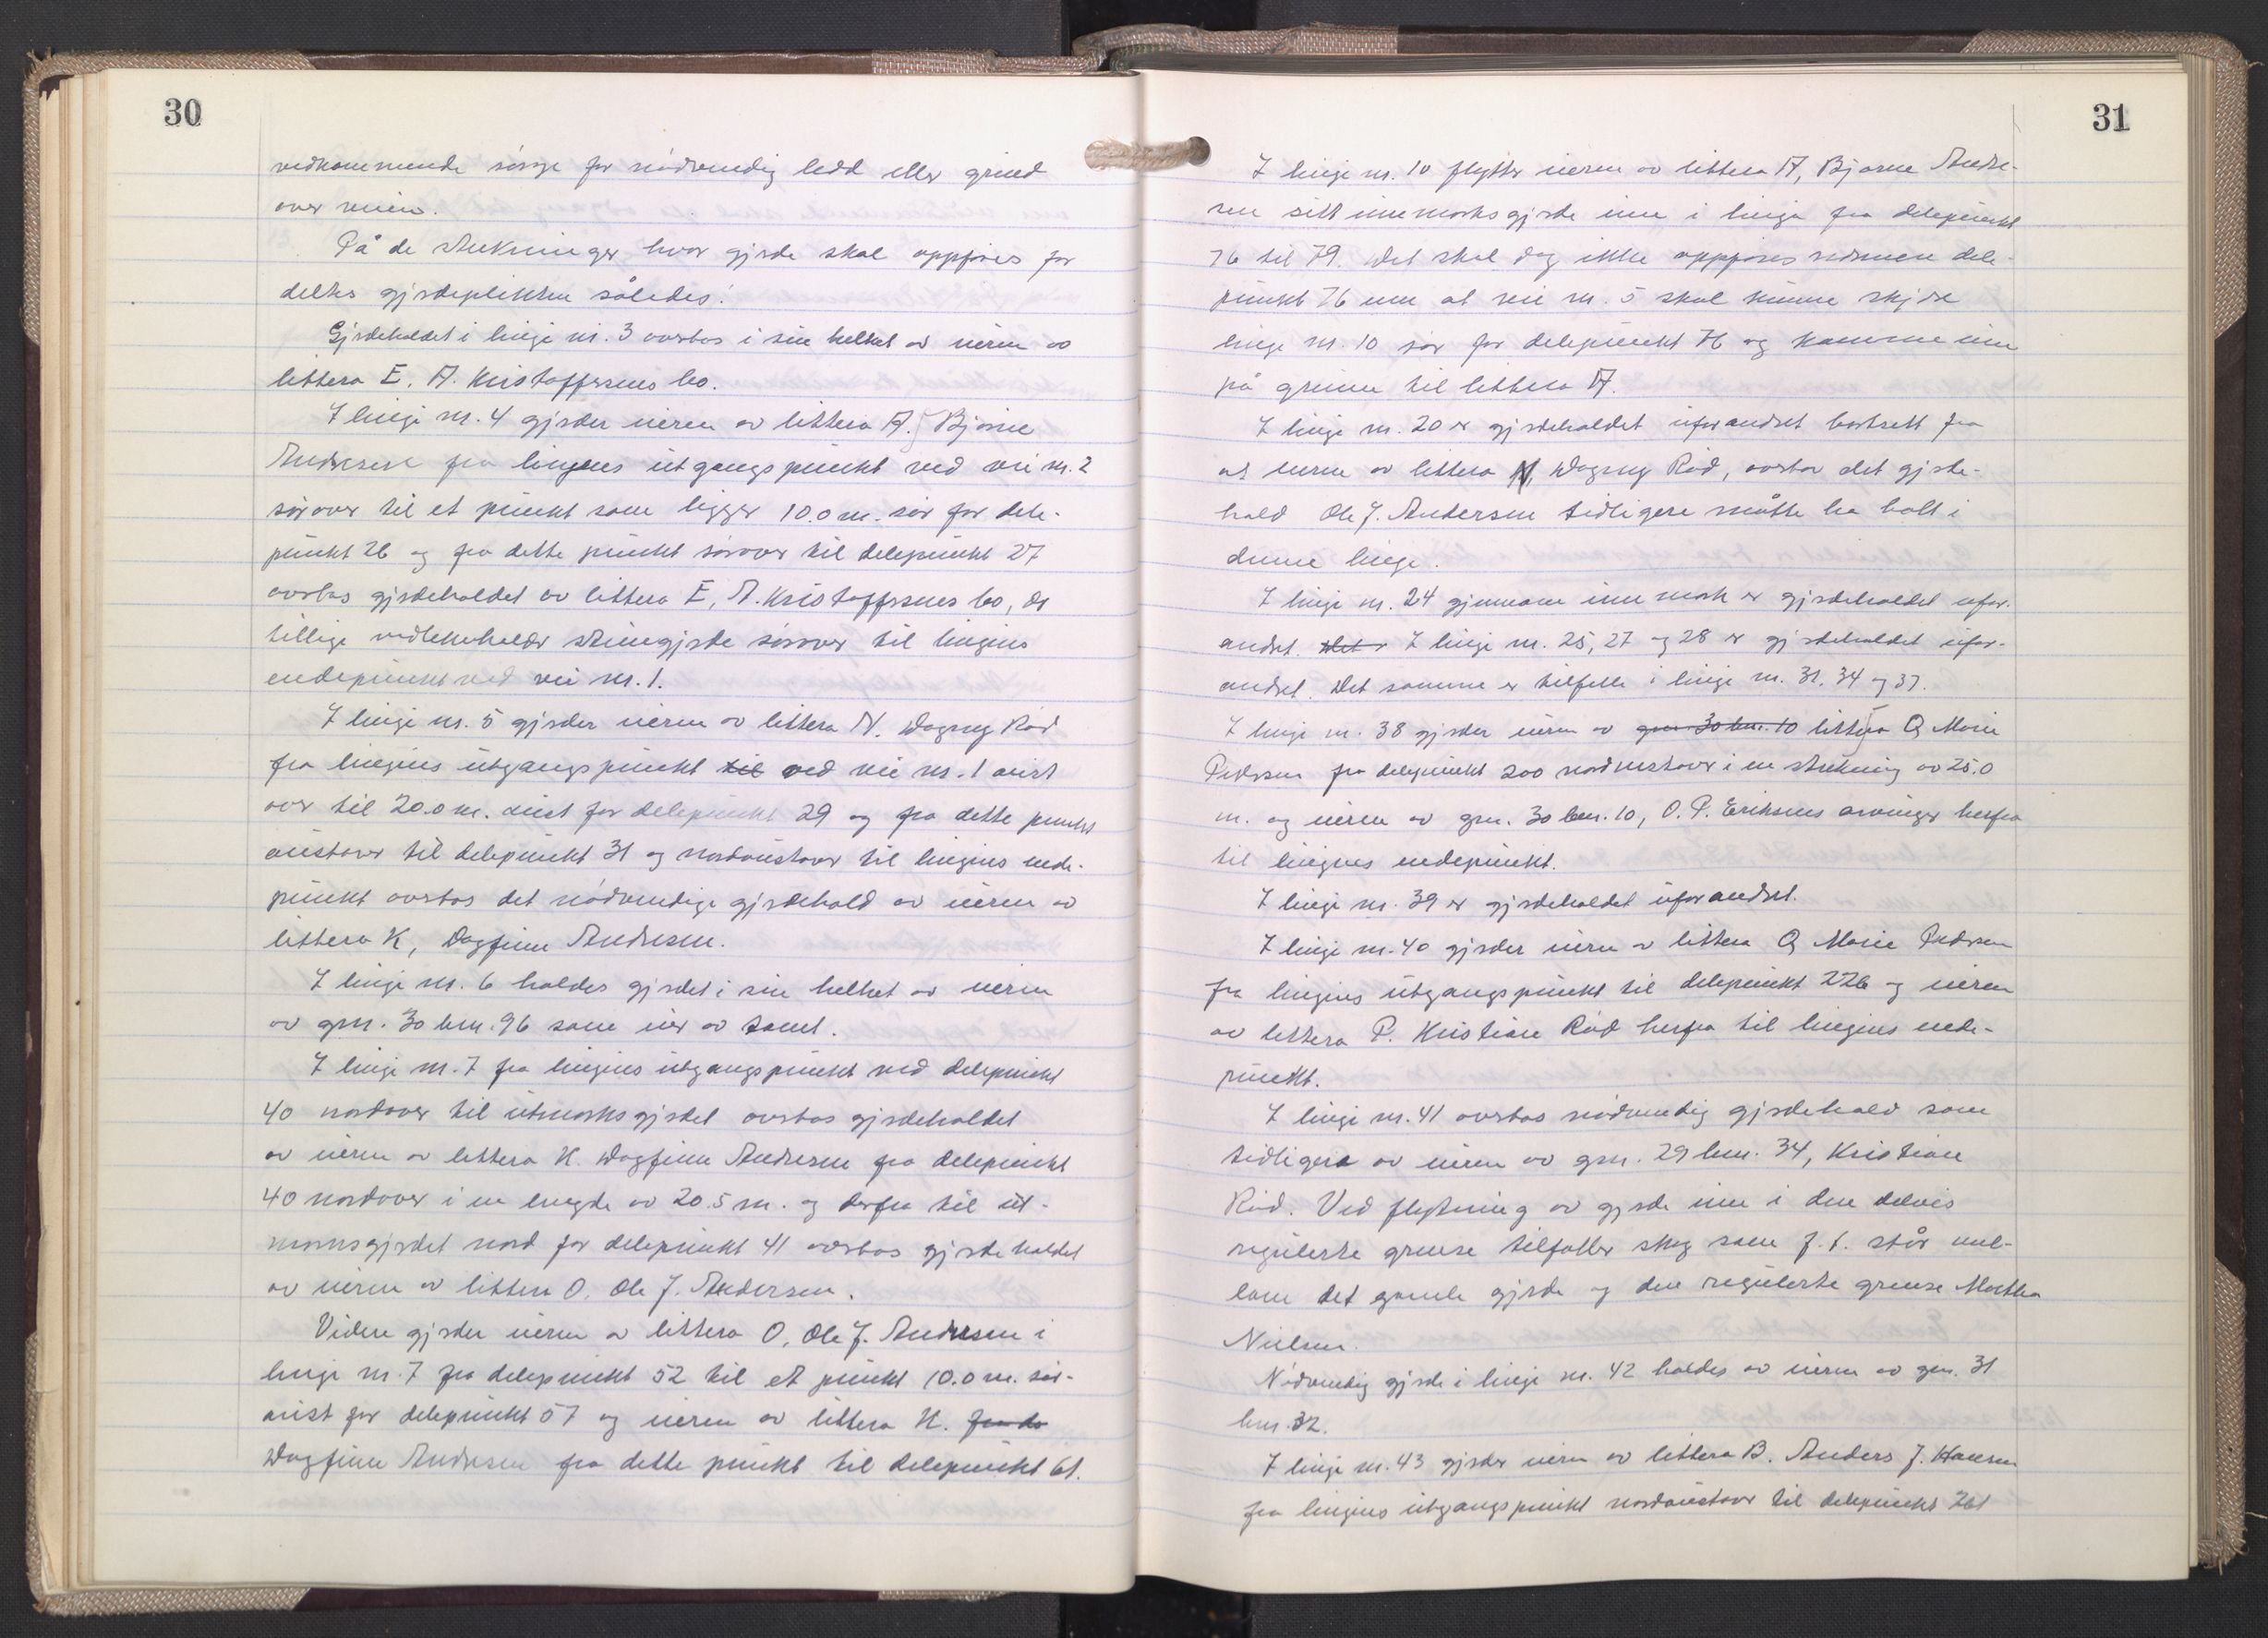 30
vedkommende sörge for nödvendig ledd eller grind
over veien.
På de strekninger hvor gjerde skal oppföres for
deles gjerdeplikten således:
Gjerdeholdet i linje nr. 3 overtas i sin helhet av eieren av
littera E. A. Kristoffersens bo.
I linje nr. 4 gjerder eieren av littera A. Bjarne
Andresen fra linjens utgangspunkt ved vei nr. 2
sörover til et punkt som ligger 10.0 m. sör for dele-
punkt 26 og fra dette punkt sörover til delepunkt 27
overtas gjerdeholdet av littera E, A. Kristoffersens bo, der
tillige vedlikeholder steingjerde sörover til linjens
endepunkt ved vei nr. 1.
I linje nr. 5 gjerder eieren av littera N. Dagny Röd
fra linjens utgangspunkt til ved vei nr. 1 aust
over til 20.0 m. aust for delepunkt 29 og fra dette punkt
austover til delepunkt 31 og nordaustover til linjens ende-
punkt overtas det nödvendige gjerdehold av eieren av
littera K, Dagfinn Andresen.
I linje nr. 6 holdes gjerdet i sin helhet av eieren
av gnr. 30 bnr. 96 som eier av tomt.
I linje nr. 7 fra linjens utgangspunkt ved delepunkt
40 nordover til utmarksgjerdet overtas gjerdeholdet
av eieren av littera K. Dagfinn Andresen fra delepunkt
40 nordover i en lengde av 20.5 m. og derfra til ut-
marksgjerdet nord for delepunkt 41 overtas gjerdeholdet
av eieren av littera O. Ole J. Andersen.
Videre gjerder eieren av littera O, Ole J. Andresen i
linje nr. 7 fra delepunkt 52 til et punkt 10.0 m. sör-
aust for delepunkt 57 og eieren av littera K. fra de
Dagfinn Andresen fra dette punkt til delepunkt 61.
31
I linje nr. 10 flytter eieren av littera A, Bjarne Andre-
sen sitt innmarksgjerde inn i linja fra delepunkt
76 til 79. Det skal dog ikke oppföres nærmere dele-
punkt 76 enn at vei nr. 5 skal kunne skjære
linje nr. 10 sör for delepunkt 76 og komme inn
på grunn til littera A.
I linje nr. 20 er gjerdeholdet uforandret bortsett fra
at eieren av littera N, Dagny Röd, overtar det gjerde-
hold Ole J. Andersen tidligere måtte ha hatt i
denne linje.
I linje nr. 24 gjennom innmark er gjerdeholdet ufor-
andret. Det er I linje nr. 25, 27 og 28 er gjerdeholdet ufor-
andret. Det samme er tilfelle i linje nr. 31. 34 og 37.
I linje nr. 38 gjerder eieren av gnr 30 bnr. 10 littera Q Marie
Pedersen fra delepunkt 200 nordvestover i en strekning av 25.0
m. og eieren av gnr. 30 bnr. 10, O. P. Eriksens arvinger herfra
til linjens endepunkt.
I linje nr. 39 er gjerdeholdet uforandret.
I linje nr. 40 gjerder eieren av littera Q Marie Pedersen
fra linjens utgangspunkt til delepunkt 226 og eieren
av littera P. Kristian Röd herfra til linjens ende-
punkt.
I linje nr. 41 overtas nödvendig gjerdehold som
tidligere av eieren av gnr. 29 bnr. 34, Kristian
Röd. Ved flytning av gjerde inn i den delvis
regulerte grense tilfaller skog som f. t. står mel-
lom det gamle gjerde og den regulerte grense Martha
Nielsen.
Nödvendig gjerde i linje nr. 42 holdes av eieren av gnr. 31
bnr. 32.
I linje nr. 43 gjerder eieren av littera B. Anders J. Hansen
fra linjens utgangspunkt nordaustover til delepunkt 261